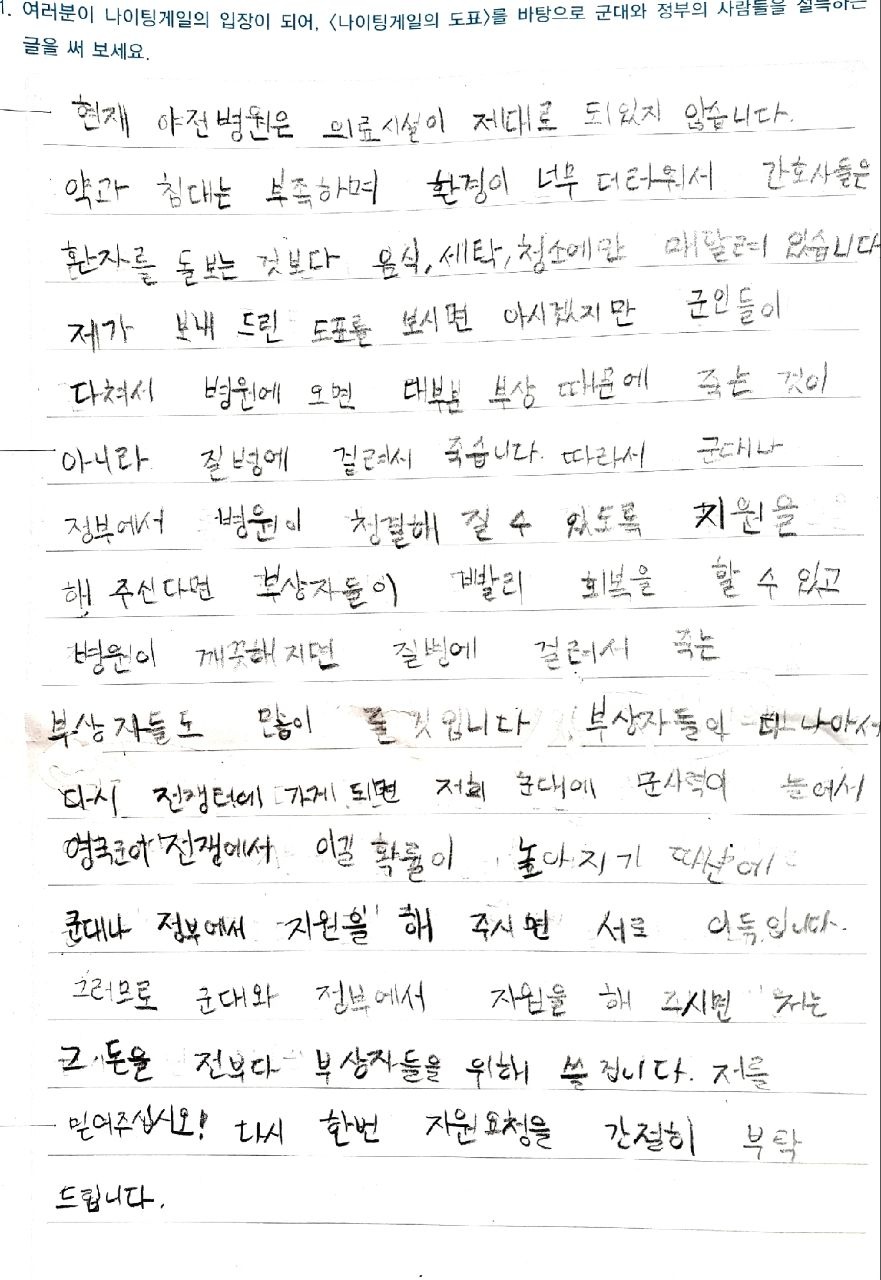 1. 여러분이 나이팅게일의 입장이 되어, <나이팅게일의 도표>를 바탕으로 군대와 정부의 사람들을 설득하는
글을 써 보세요.
현재 야전병원은 의료시설이 제대로 되있지 않습니다.
약과 침대는 부족하며 환경이 너무 더러워서 간호사들은
환자를 돌보는 것보다 음식, 세탁, 청소에만 매달려 있습니다
제가 보내 드린 도표를 보시면 아시겠지만 군인들이
다쳐서 병원에 오면 대부분 부상 때문에 죽는 것이
아니라 질병에 걸려서 죽습니다. 따라서 군대나
정부에서 병원이 청결해 질 수 있도록 지원을
해 주신다면 부상자들이 빨리 회복을 할 수 있고
병원이 깨끗해지면 질병에 걸려서 죽는
부상자들도 많이 줄 것입니다 부상자들이 다 나아서
다시 전쟁터에 가게 되면 저희 군대에 군사력이 높어서
영국군이 전쟁에서 이길 확률이 높아지기 때문에
군대나 정부에서 지원을 해 주시면 서로 이득입니다.
그러므로 군대와 정부에서 자원을 해 주시면 저는
그 돈을 전부다 부상자들을 위해 쓸겁니다. 저를
믿어주십시오! 다시 한번 자원요청을 간절히 부탁
드립니다.